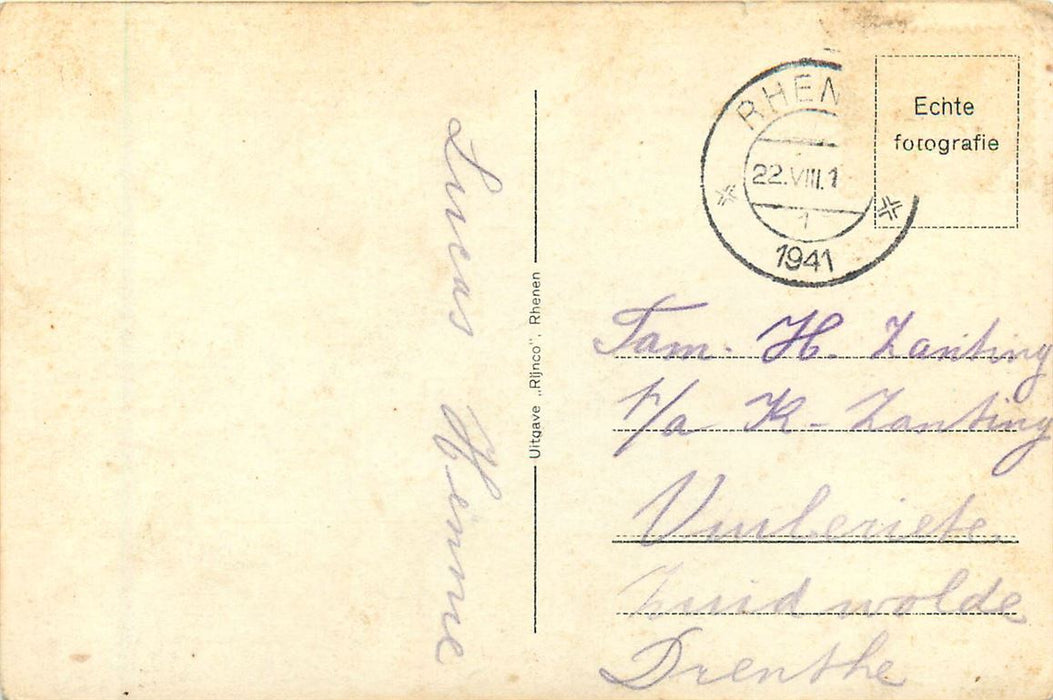 Lucas Hemme
Uitgave „Rijnco", Rhenen
RHEN
22.VIII.1
1
1941
Echte
fotografie
Fam. H. Zanting
p/a K- Zanting
Zuidwolde
Drenthe